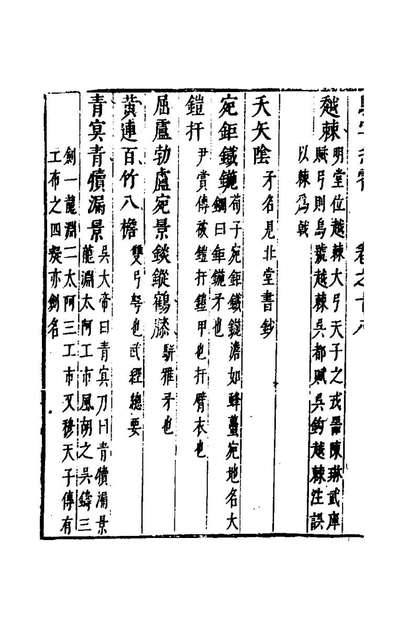 卷之十八
越棘 明堂位越棘大弓天子之戎器陳琳武庫
賦弓則烏號越棘吳都賦吳鉤越棘注誤
以棘為戟
天矢陰 矛名見北堂書鈔
宛鉅鐵 荀子宛鉅鐵 如蜂蠆宛地名大
鋼曰鉅 矛也
鎧扞
尹賞傳被鎧扞鎧甲也扞臂衣也
屈盧勃盧宛景錟鏦鶴膝 駢雅矛也
黃連百竹八檐 雙弓弩也武經總要
青冥青犢漏景 吳大帝曰青冥刀曰青犢漏景
龍淵太阿工市風胡之吳鑄三
劍一龍淵二太阿三工市又穆天子傳有
工布之四 亦劍名